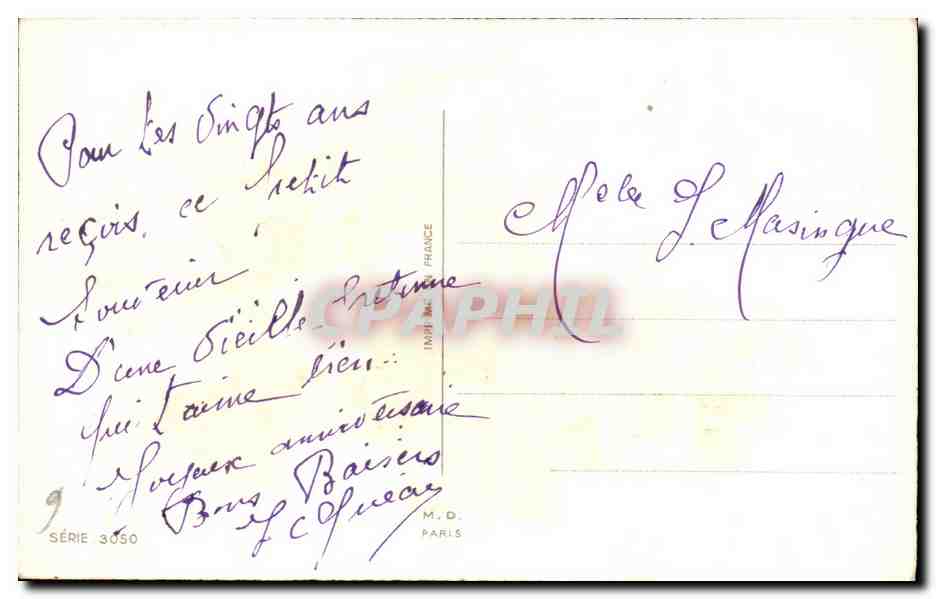 Pour tes vingts ans
reçois, ce petit
souvenir
D'une vieille bretonne
qui t'aime bien
Joyeux anniversaire
Bons Baisers
9
SÉRIE 3050
M. D.
PARIS
IMPRIMÉ EN FRANCE
CPAPHIL
Melle J. Masingue